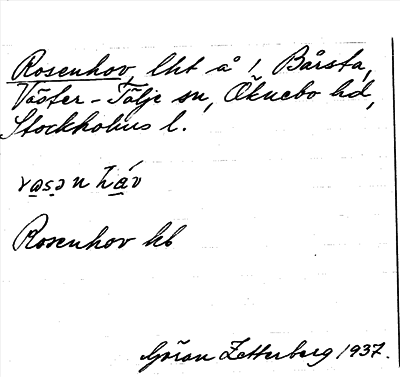 Rosenhov, lht å 1 Bårsta,
Väster-Tälje sn, Öknebo hd,
Stockholms l.
rɷsənhɷ́v
Rosenhov kb
Göran Zetterberg 1937.